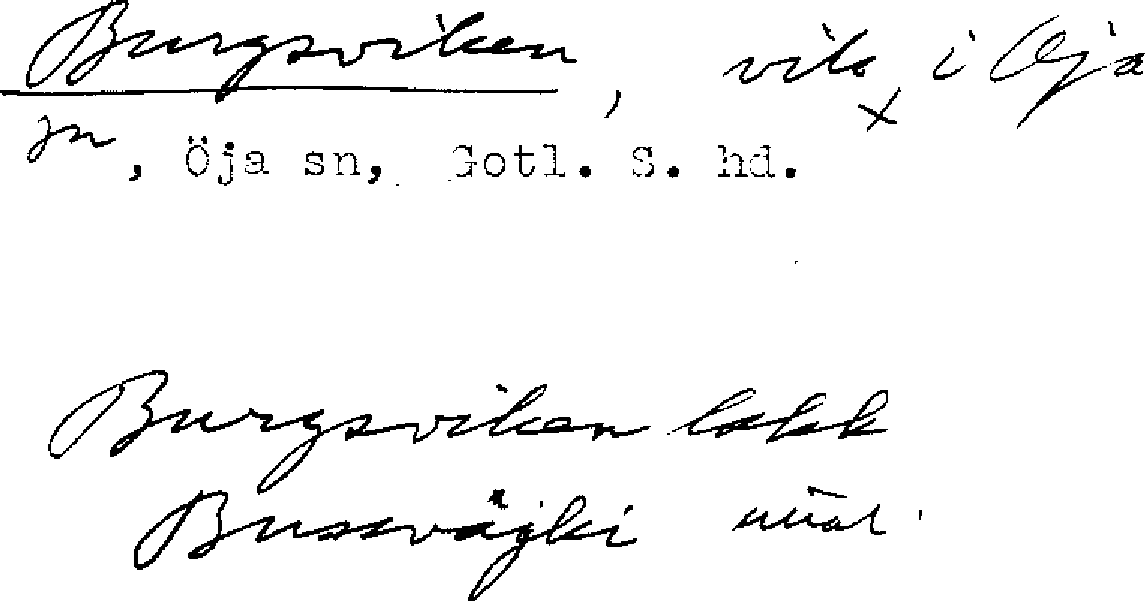 Burgsviken, vik i Öja
sn, Öja sn, Gotl. S. hd.
Burgsviken lokk
Bussväjki